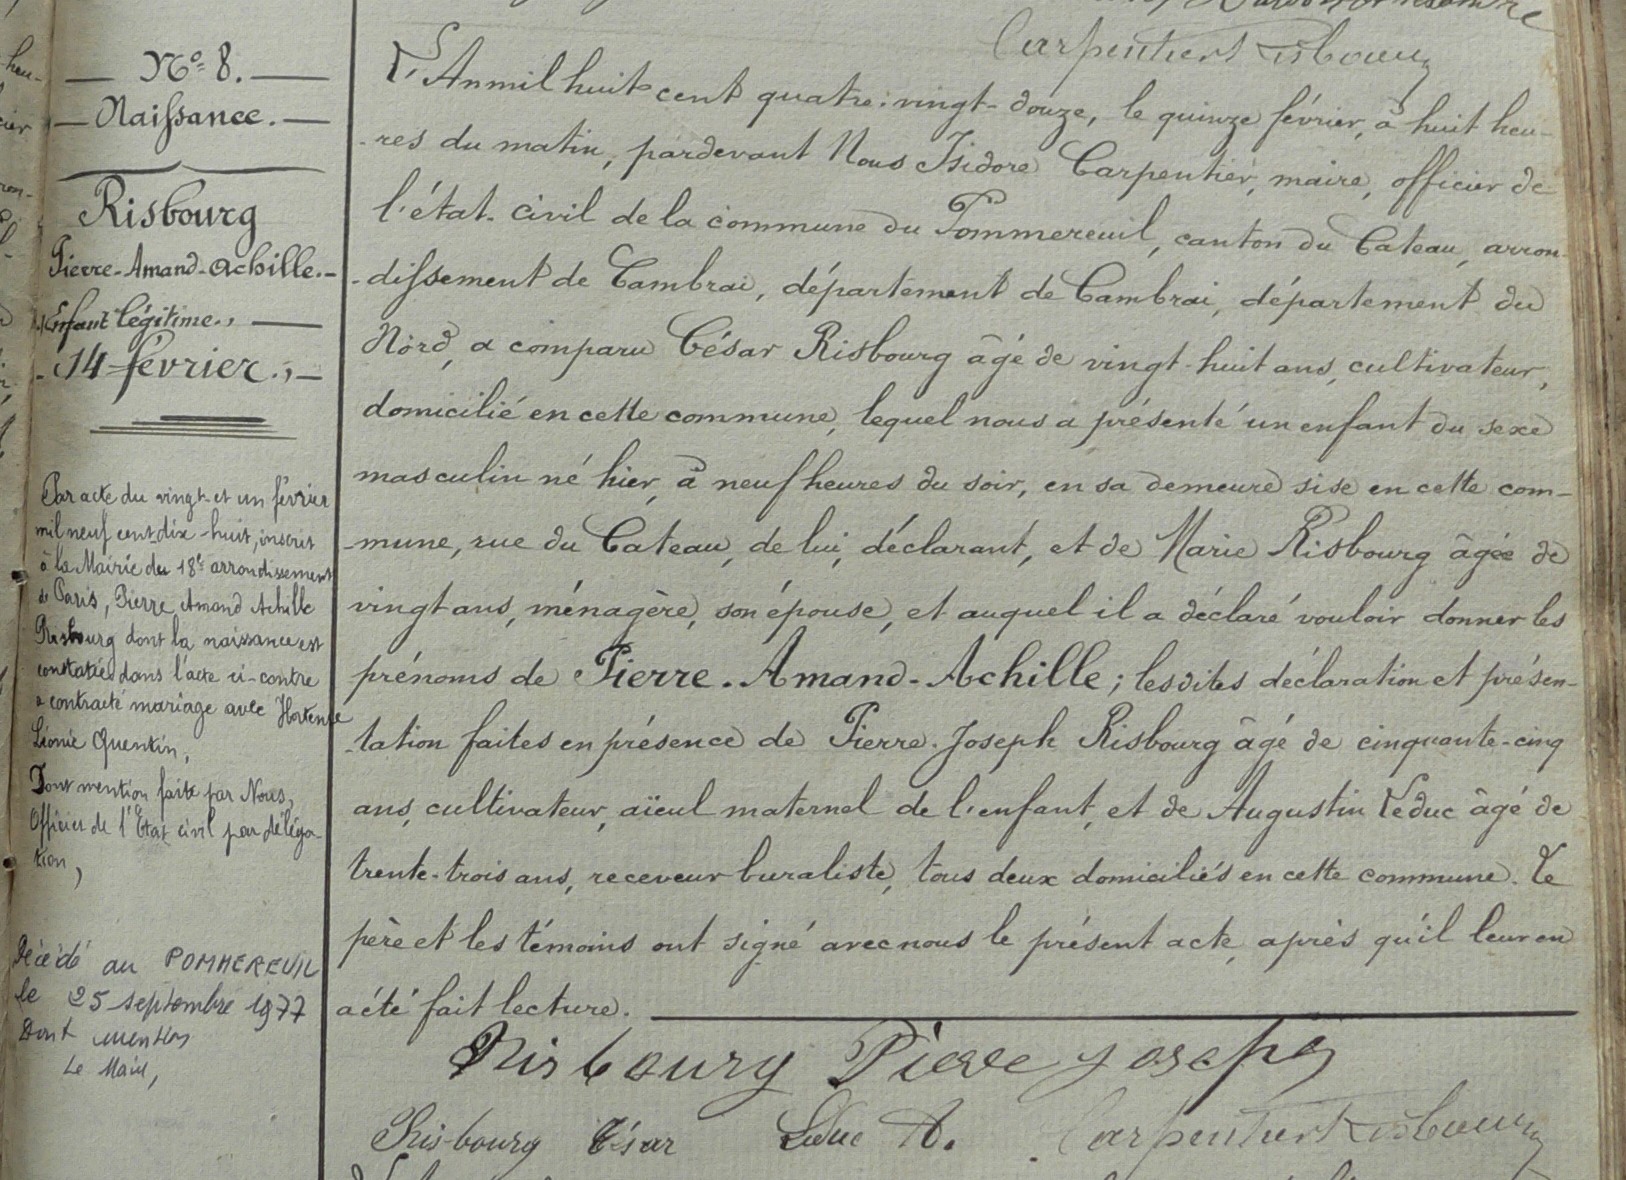 Carpentier Risbourg
N° 8.
Naissance.
Risbourg
Pierre-Amand-Achille.-
Enfant légitime.,
14 février.,
Par acte du vingt-et un février
mil neuf cent-dix-huit, inscrit
à la Mairie du 18e arrondissement
de Paris, Pierre Amand Achille
Risbourg dont la naissance est
constatée dans l'acte ci-contre
a contracté mariage avec Hortense
Léonie Quentin,
Dont mention faite par Nous,
Officier de l'Etat civil par déléga-
tion,
Décédé au POMMEREUIL
le 25 septembre 1977
Dont mention
Le Maire,
L'An mil huit cent quatre-vingt-douze, le quinze février, à huit heu-
-res du matin, pardevant Nous Isidore Carpentier, maire, officier de
l'état-civil de la commune du Pommereuil, canton du Cateau, arron-
-dissement de Cambrai, département de Cambrai, département du
Nord, a comparu César Risbourg âgé de vingt-huit ans, cultivateur,
domicilié en cette commune, lequel nous a présenté un enfant du sexe
masculin né hier, à neuf heures du soir, en sa demeure sise en cette com-
-mune, rue du Cateau, de lui, déclarant, et de Marie Risbourg âgée de
vingt ans, ménagère, son épouse, et auquel il a déclaré vouloir donner les
prénoms de Pierre-Amand-Achille; lesdites déclaration et présen-
-tation faites en présence de Pierre-Joseph Risbourg âgé de cinquante-cinq
ans, cultivateur, aïeul maternel de l'enfant, et de Augustin Leduc âgé de
trente-trois ans, receveur buraliste, tous deux domiciliés en cette commune. Le
père et les témoins ont signé avec nous le présent acte, après qu'il leur en
a été fait lecture.
Risbourg Pierre joseph
Risbourg César Leduc A. Carpentier Risbourg